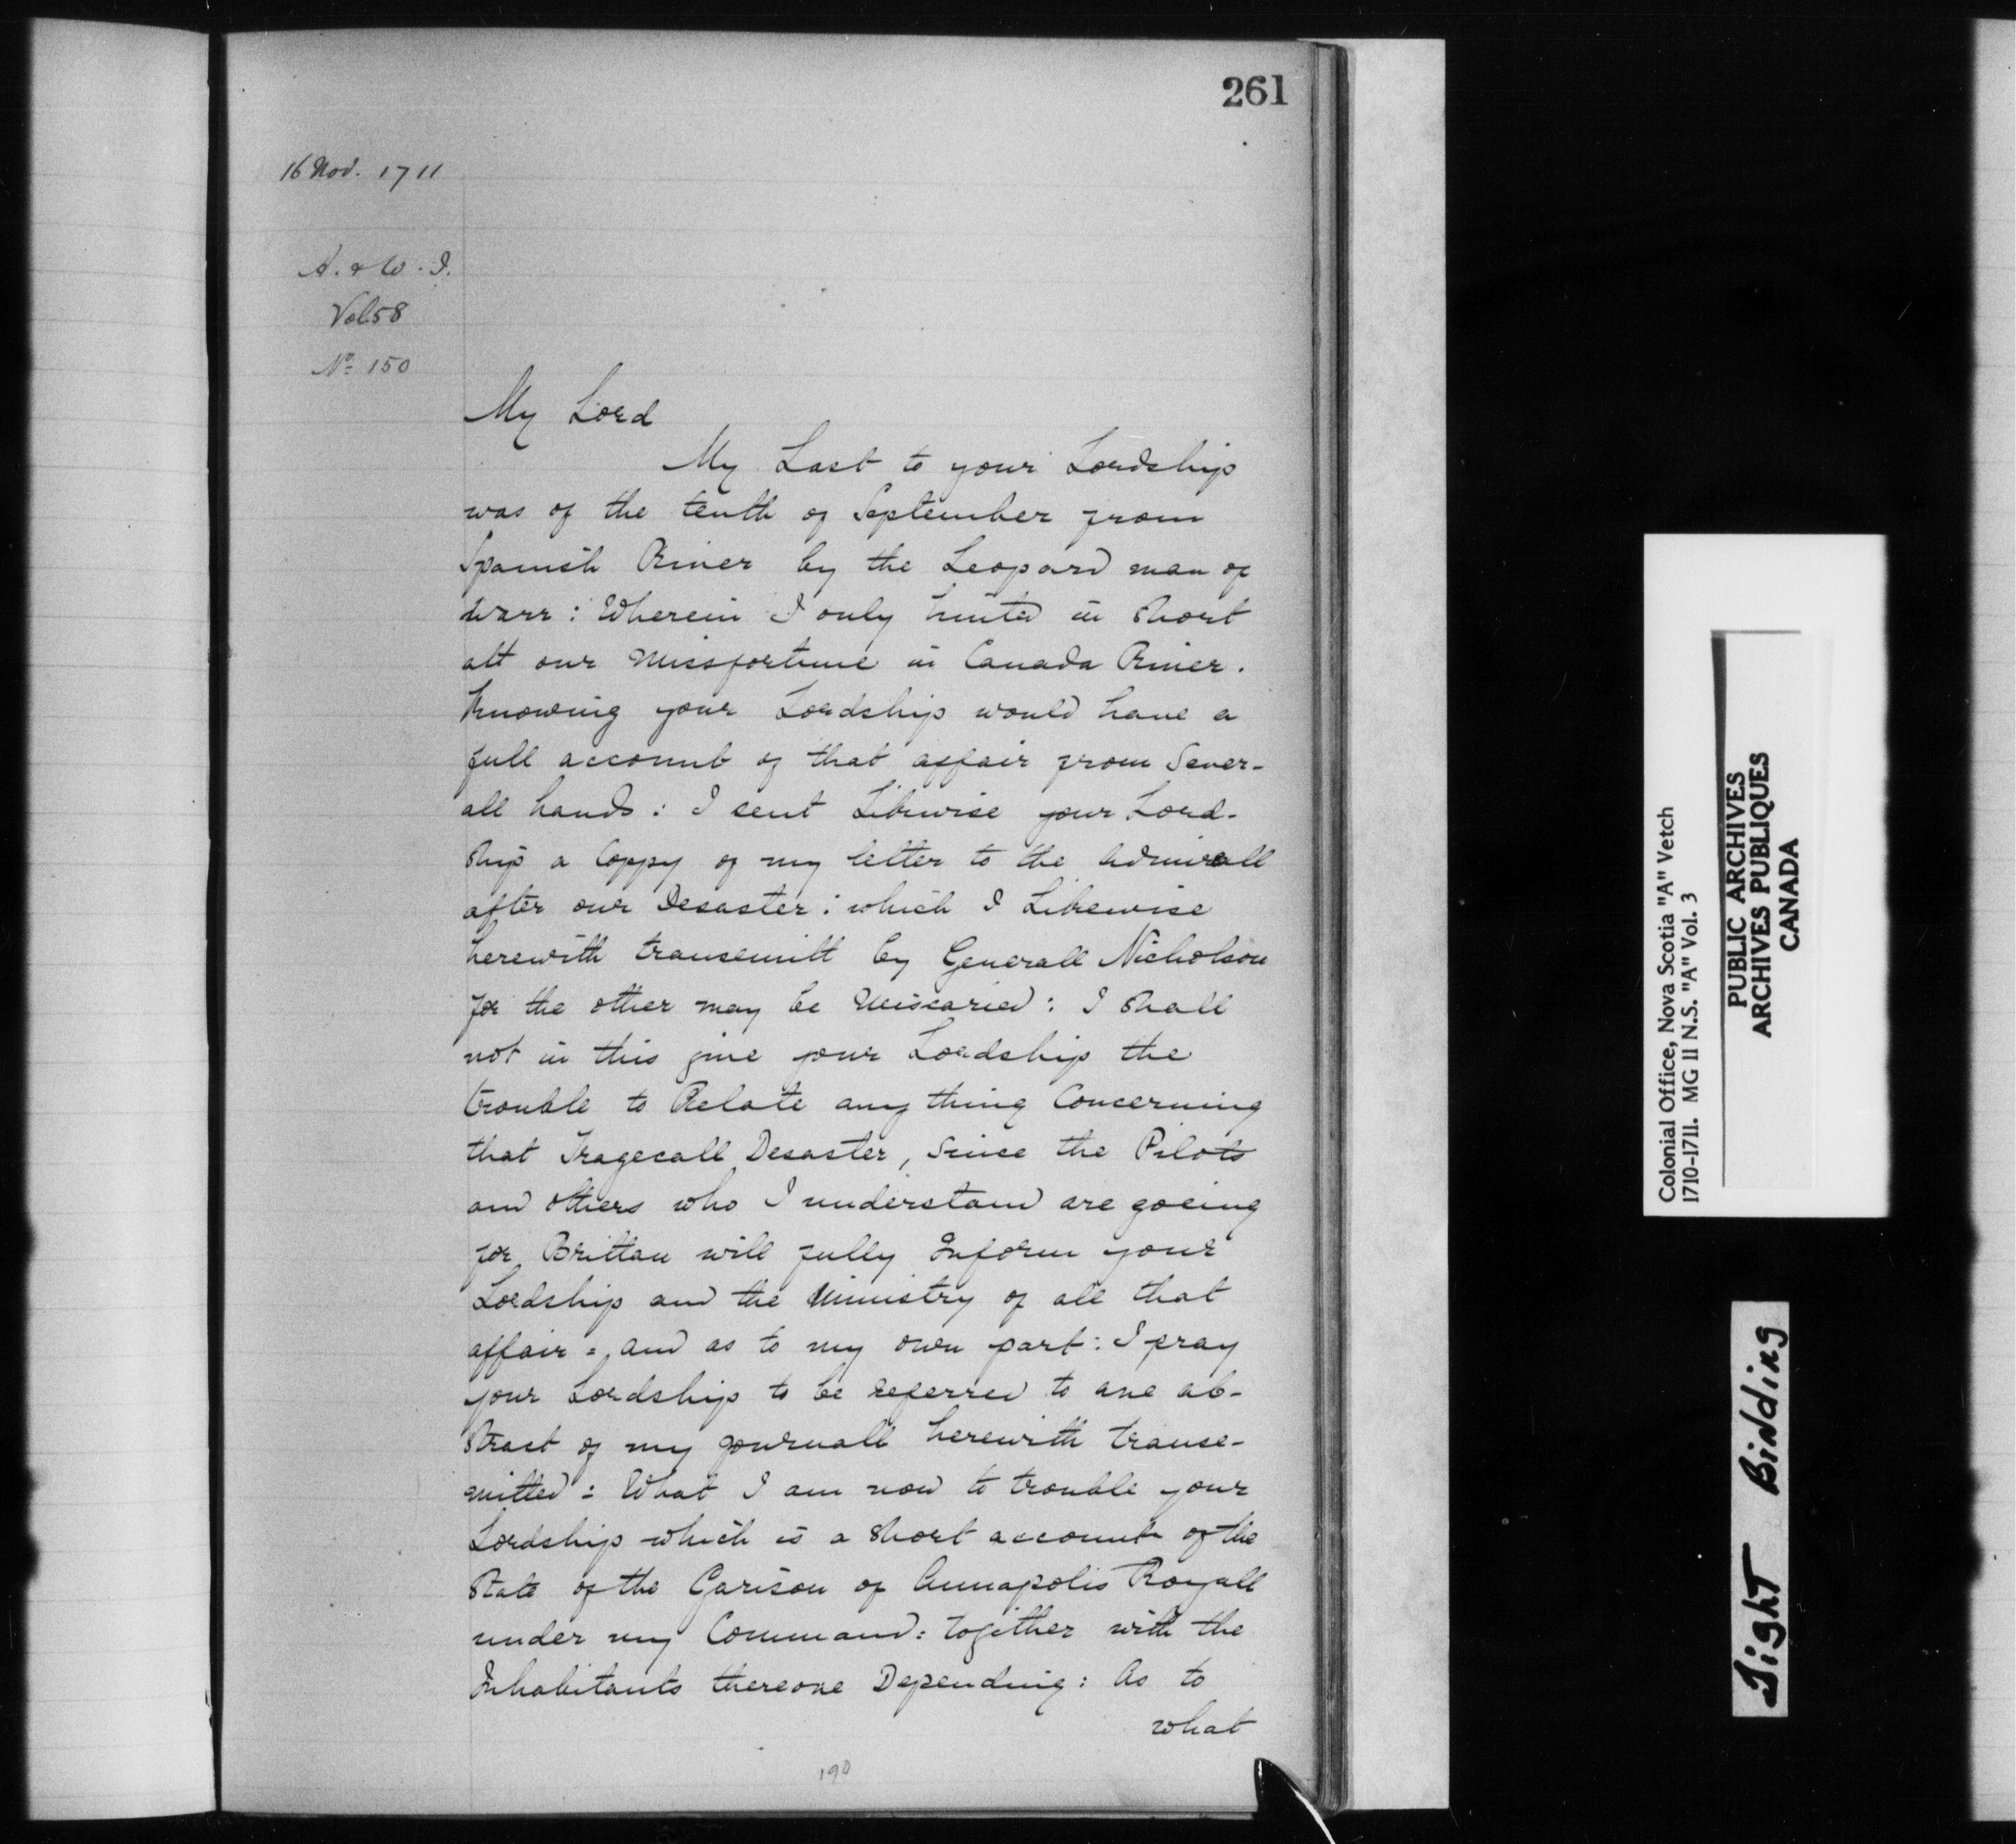 261
16 Nov. 1711
A. & W. I.
Vol 58
No 150
My Lord
My Last to your Lordship
was of the tenth of September from
Spanish River by the Leopard man of
warr: Wherein I only hinted in Short
att our Missfortune in Canada River.
Knowing your Lordship would have a
full account of that affair from Sever-
all hands: I sent Likewise your Lord-
ship a Coppy of my letter to the Admirall
after our Desaster: which I Likewise
herewith transemitt by Generall Nicholson
for the other may be Miscaried: I shall
not in this give your Lordship the
trouble to Relate any thing Concerning
that Tragecall Desaster, Since the Pilots
and others who I understand are goeing
for Brittan will fully Inform your
Lordship and the Ministry of all that
affair = and as to my own part: I pray
your Lordship to be referred to ane ab-
stract of my Journall herewith transe-
mitted: What I am now to trouble your
Lordship which is a short account of the
State of the Garison of Annapolis Royall
under my Command: together with the
Inhabitants thereone Depending: As to
what
190
Colonial Office, Nova Scotia "A" Vetch
1710-1711. MG 11 N.S. "A" Vol. 3
PUBLIC ARCHIVES
ARCHIVES PUBLIQUES
CANADA
Tight Binding